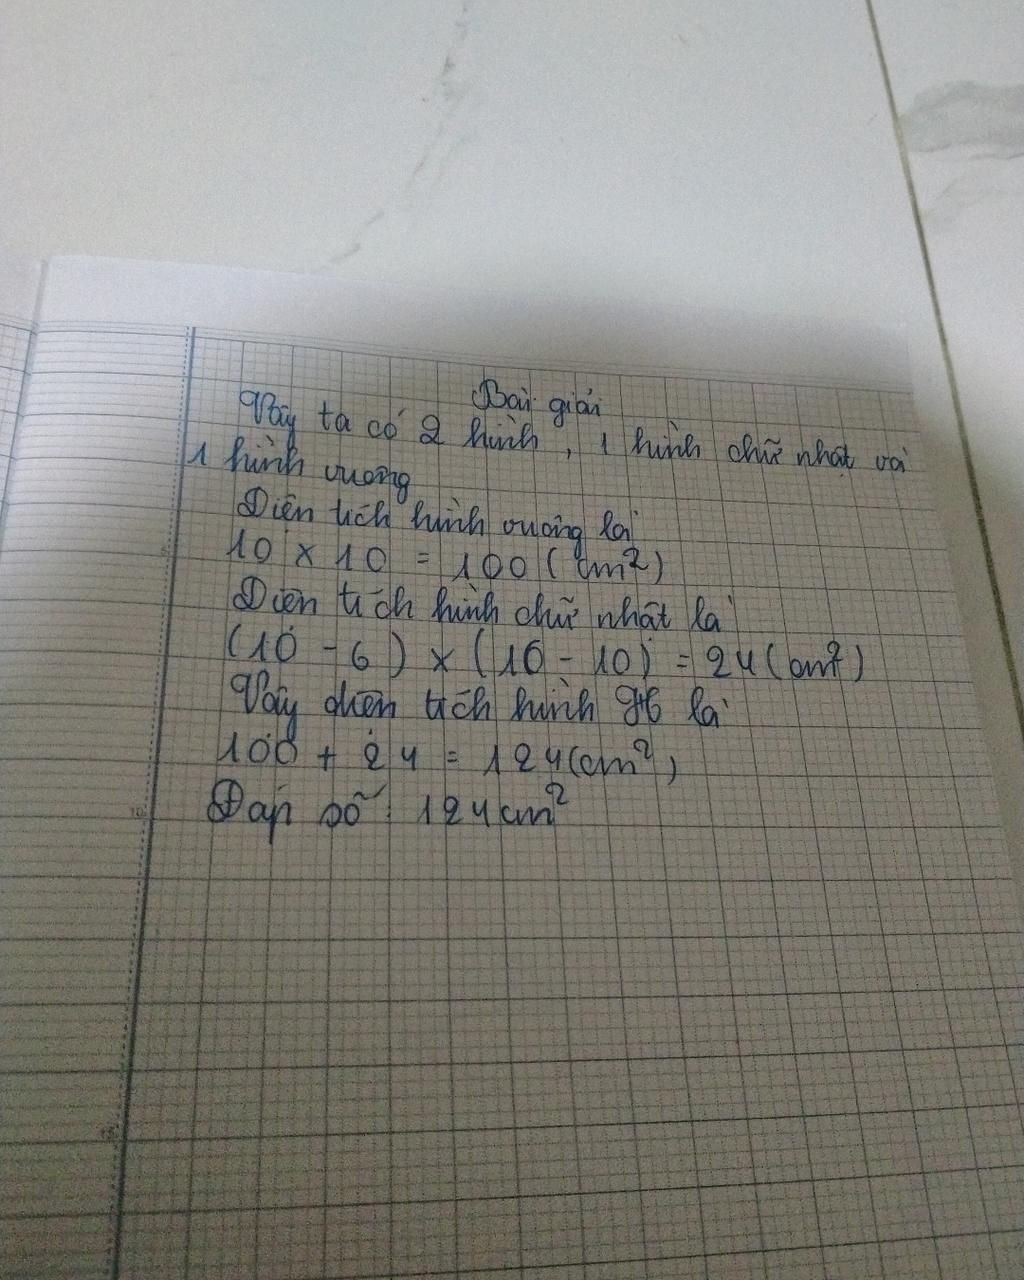 Bài giải
Vậy ta có 2 hình, 1 hình chữ nhật và
1 hình vuông
Diện tích hình vuông là
10 x 10 = 100 (cm²)
Diện tích hình chữ nhật là
(10 - 6) x (16 - 10) = 24 (cm²)
Vậy diện tích hình H là
100 + 24 = 124 (cm²)
Đáp số: 124 cm²